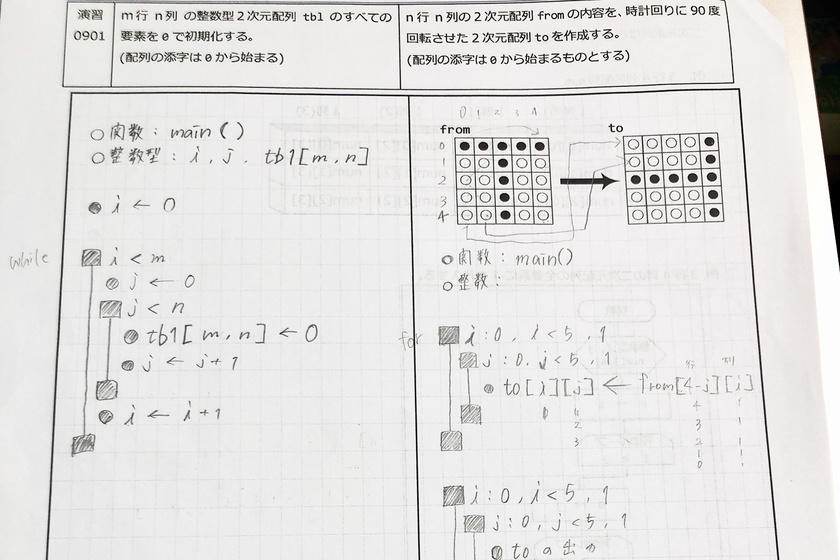 演習
0901
m行 n列 の整数型2次元配列 tbl のすべての
要素を0で初期化する。
(配列の添字は0から始まる)
n行 n列の2次元配列 from の内容を、時計回りに90度
回転させた2次元配列 to を作成する。
(配列の添字は0から始まるものとする)
○関数: main()
○整数型: i, j, tbl[m,n]
● i ← 0
while
■ i < m
● j ← 0
■ j < n
● tbl[m,n] ← 0
● j ← j+1
● i ← i+1
0 1 2 3 4
from
to
0
1
2
3
4
○関数: main()
○整数:
for
■ i:0, i<5, 1
■ j:0, j<5, 1
行 列
● to[i][j] ← from[4-j][i]
0 0 4 1
2 3 1
3 2 1
1 1
0 1
■ i:0, i<5, 1
■ j:0, j<5, 1
● toの出力